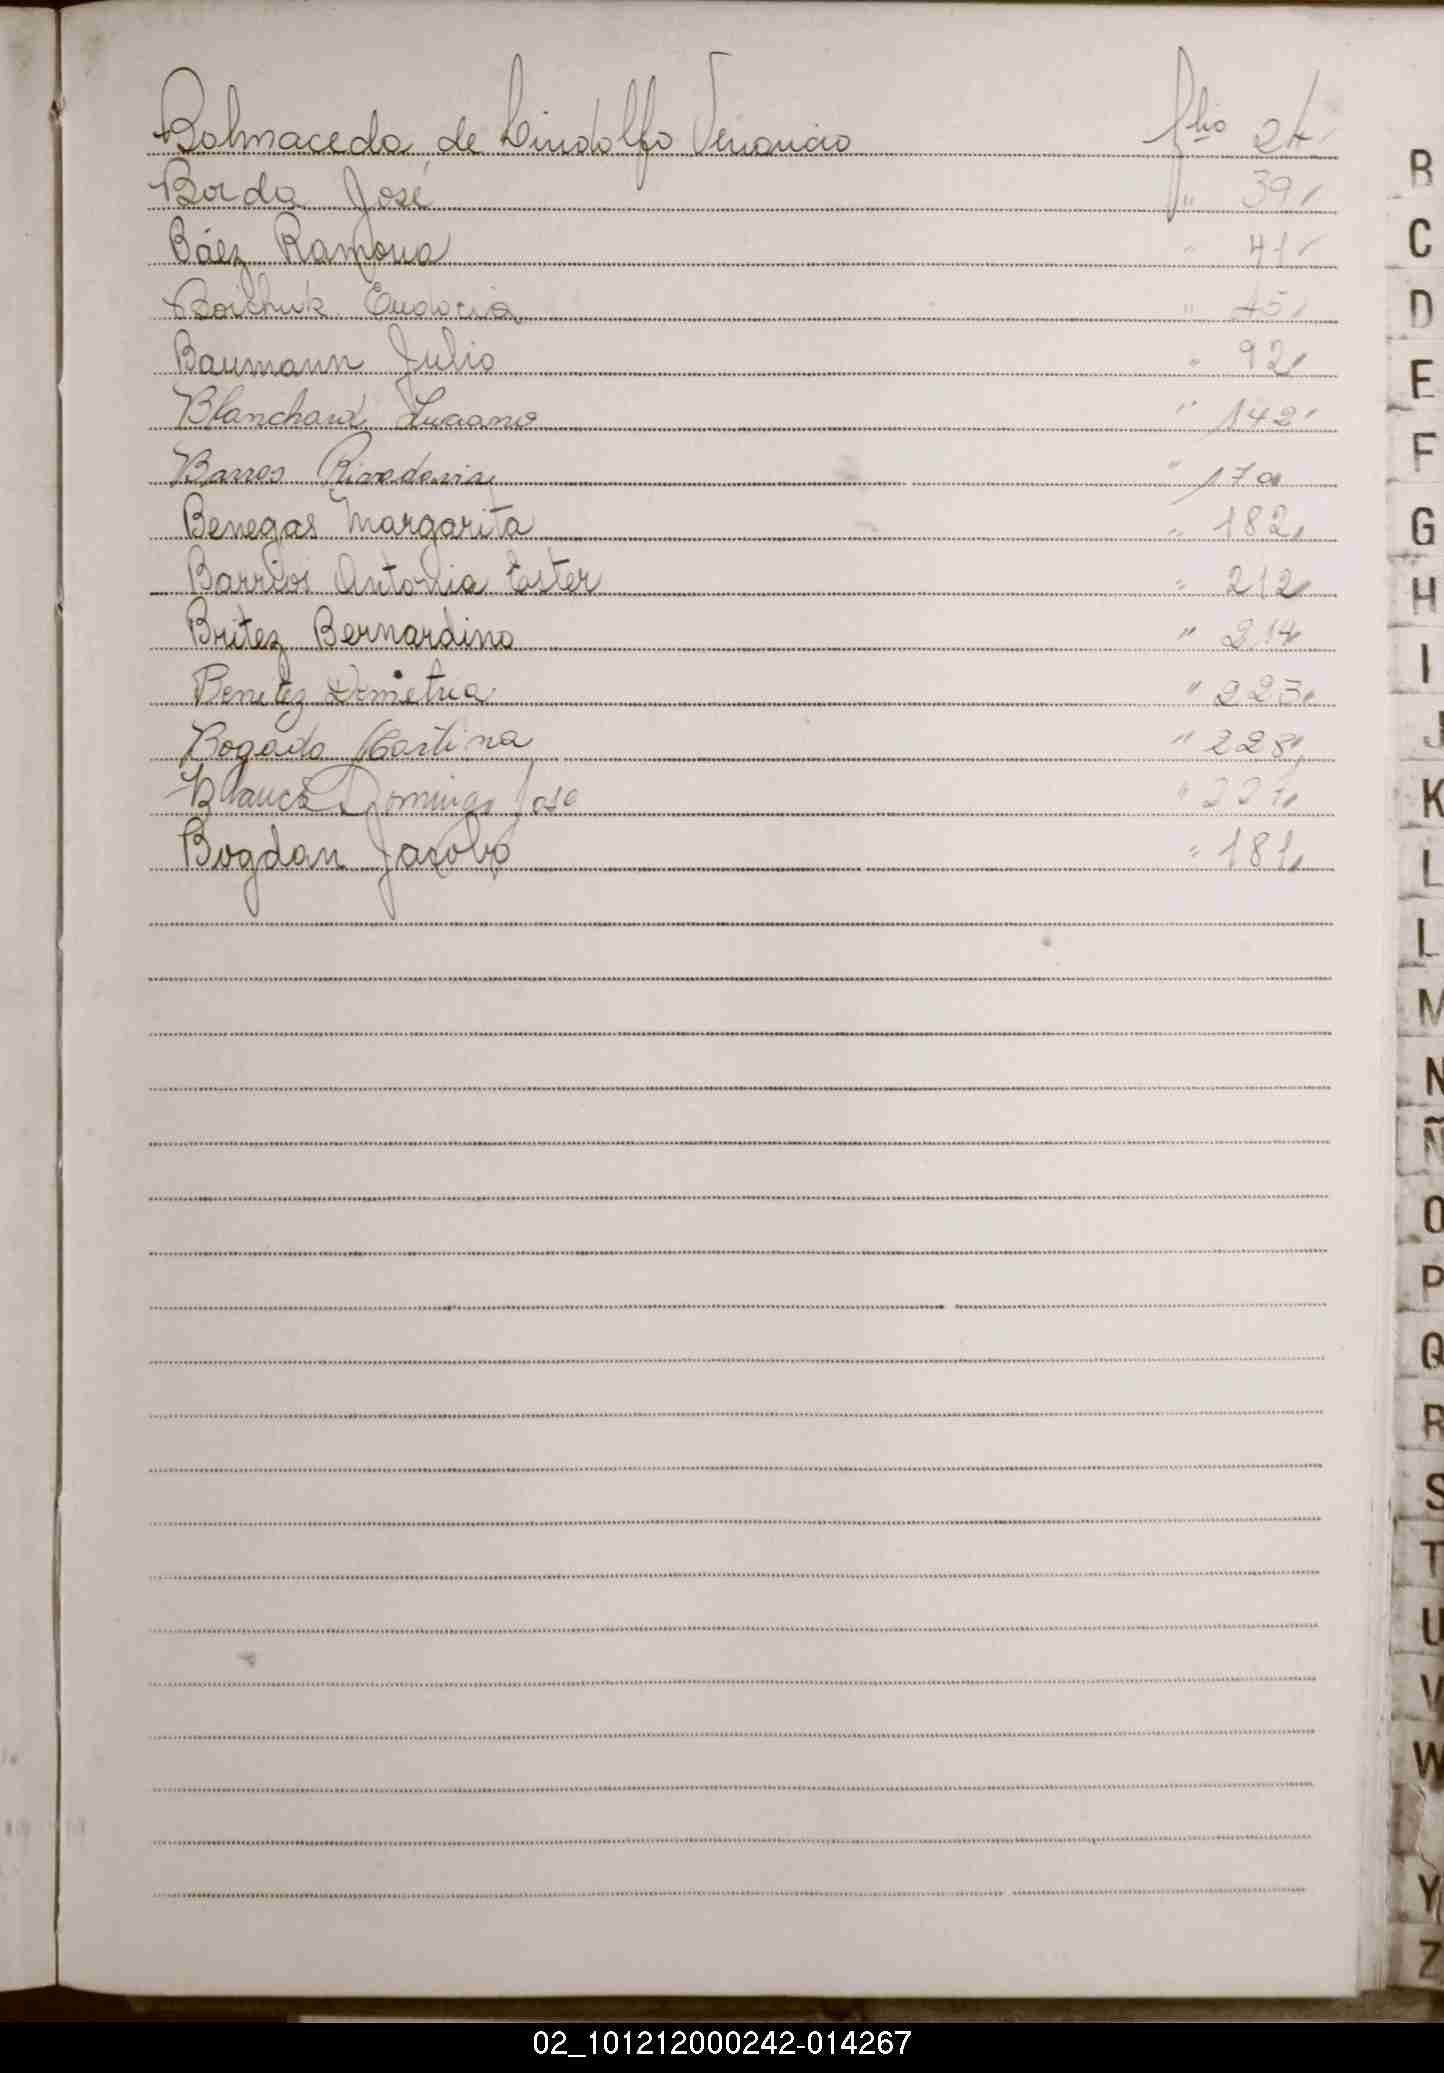 Balmaceda de Lindolfo Venancio folio 24
Borda José " 39
Báez Ramona " 41
Boichuk Eudocia " 45
Baumann Julio " 92
Blanchard Luciano " 142
Barros Rivadavia " 170
Benegas Margarita " 182
Barrios Antonia Ester " 212
Britez Bernardino " 214
Benitez Demetria " 223
Bogado Martina " 228
Domingo José "
Bogdan Jacobo " 181
B
C
D
E
F
G
H
I
J
K
L
L
M
N
Ñ
O
P
Q
R
S
T
U
V
W
Y
Z
02_101212000242-014267